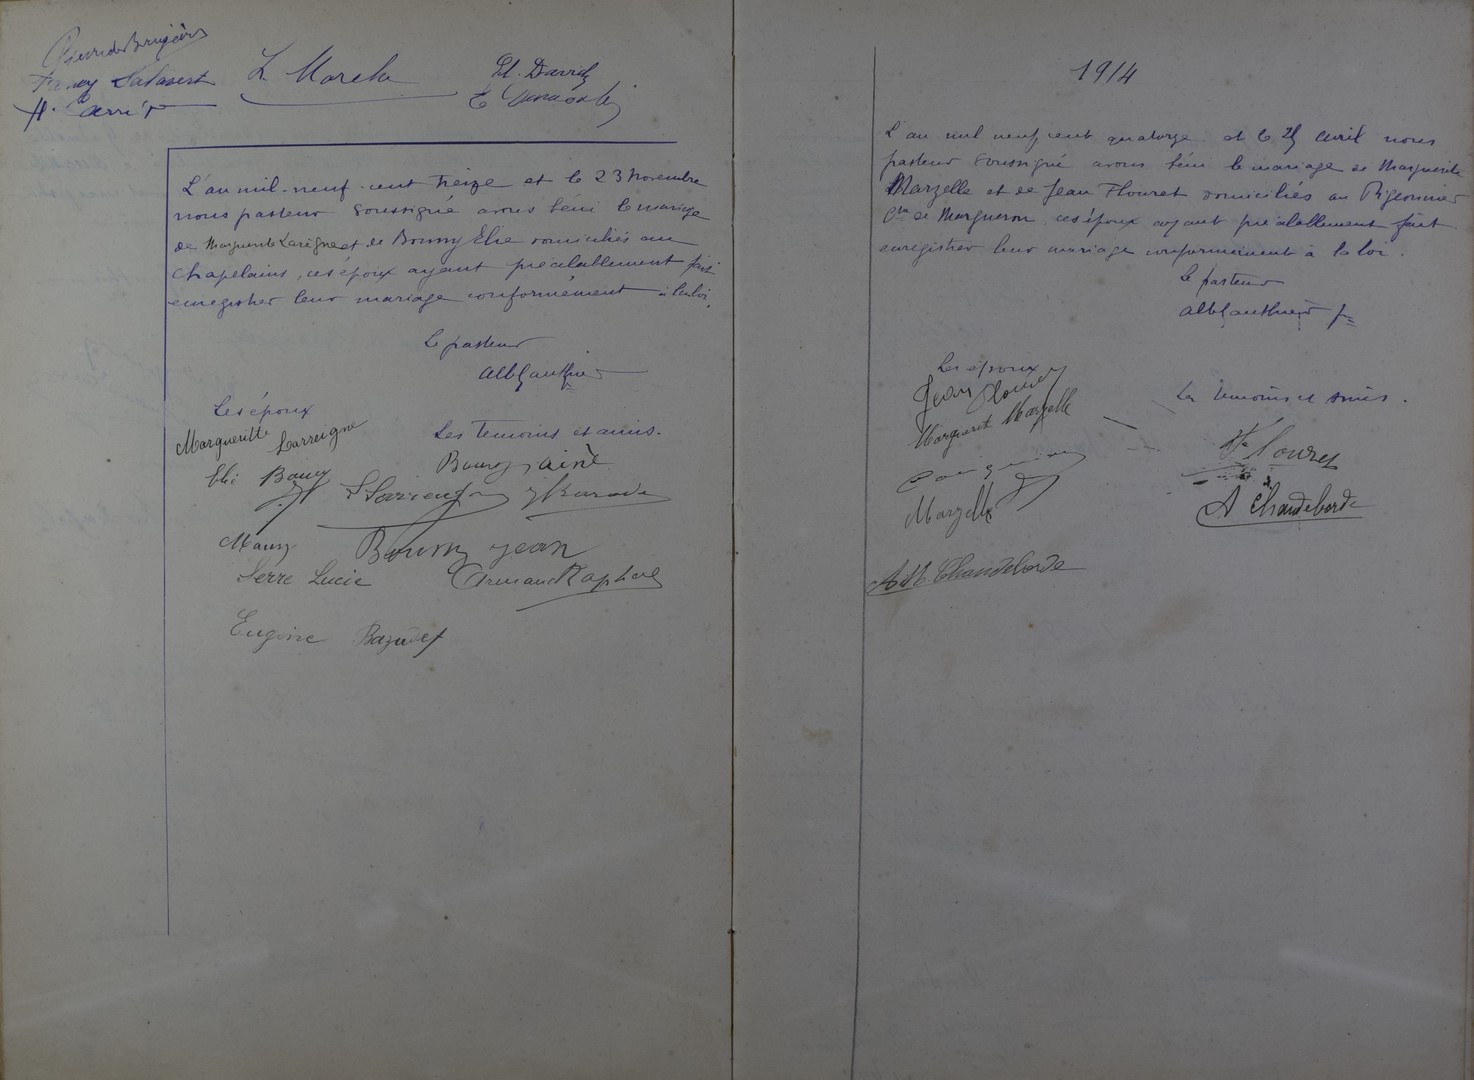 Fancy Salavert
H. Carrié
L Morche
El. David
L'an mil-neuf-cent treize et le 23 Novembre
nous pasteur soussigné avons beni le mariage
de Marguerite Lareigne et de Bouny Elie domiciliés au
Chapelains, ces époux ayant préalablement fait
enregistrer leur mariage conformément à la loi.
Le pasteur
Alb Gauthier
Les époux
Margueritte Larreigne
Eli Bouny
Les Temoins et amis.
Bouny ainé
Mauzy
Bouny jean
Serre Lucie
Armand Raphael
1914
L'an mil neuf cent quatorze et le 25 Avril nous
pasteur soussigné avons béni le mariage de Marguerite
Marzelle et de Jean Flouret domiciliés au Pigeonnier
Cne de Margueron, ces époux ayant préalablement fait
enregistrer leur mariage conformément à la loi.
Le pasteur
Alb Gauthier p
Les époux
Jean Flouret
Margueret Marzelle
Marzelle
Ath. Chaudeborde
Les Temoins et amis.
Flouret
A Chaudeborde